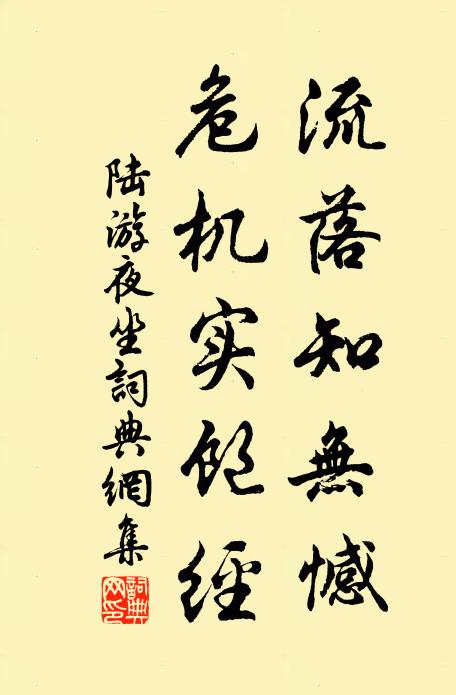 流落知無憾
危机实饱经
陆游夜坐詞典網集
詞典
网印